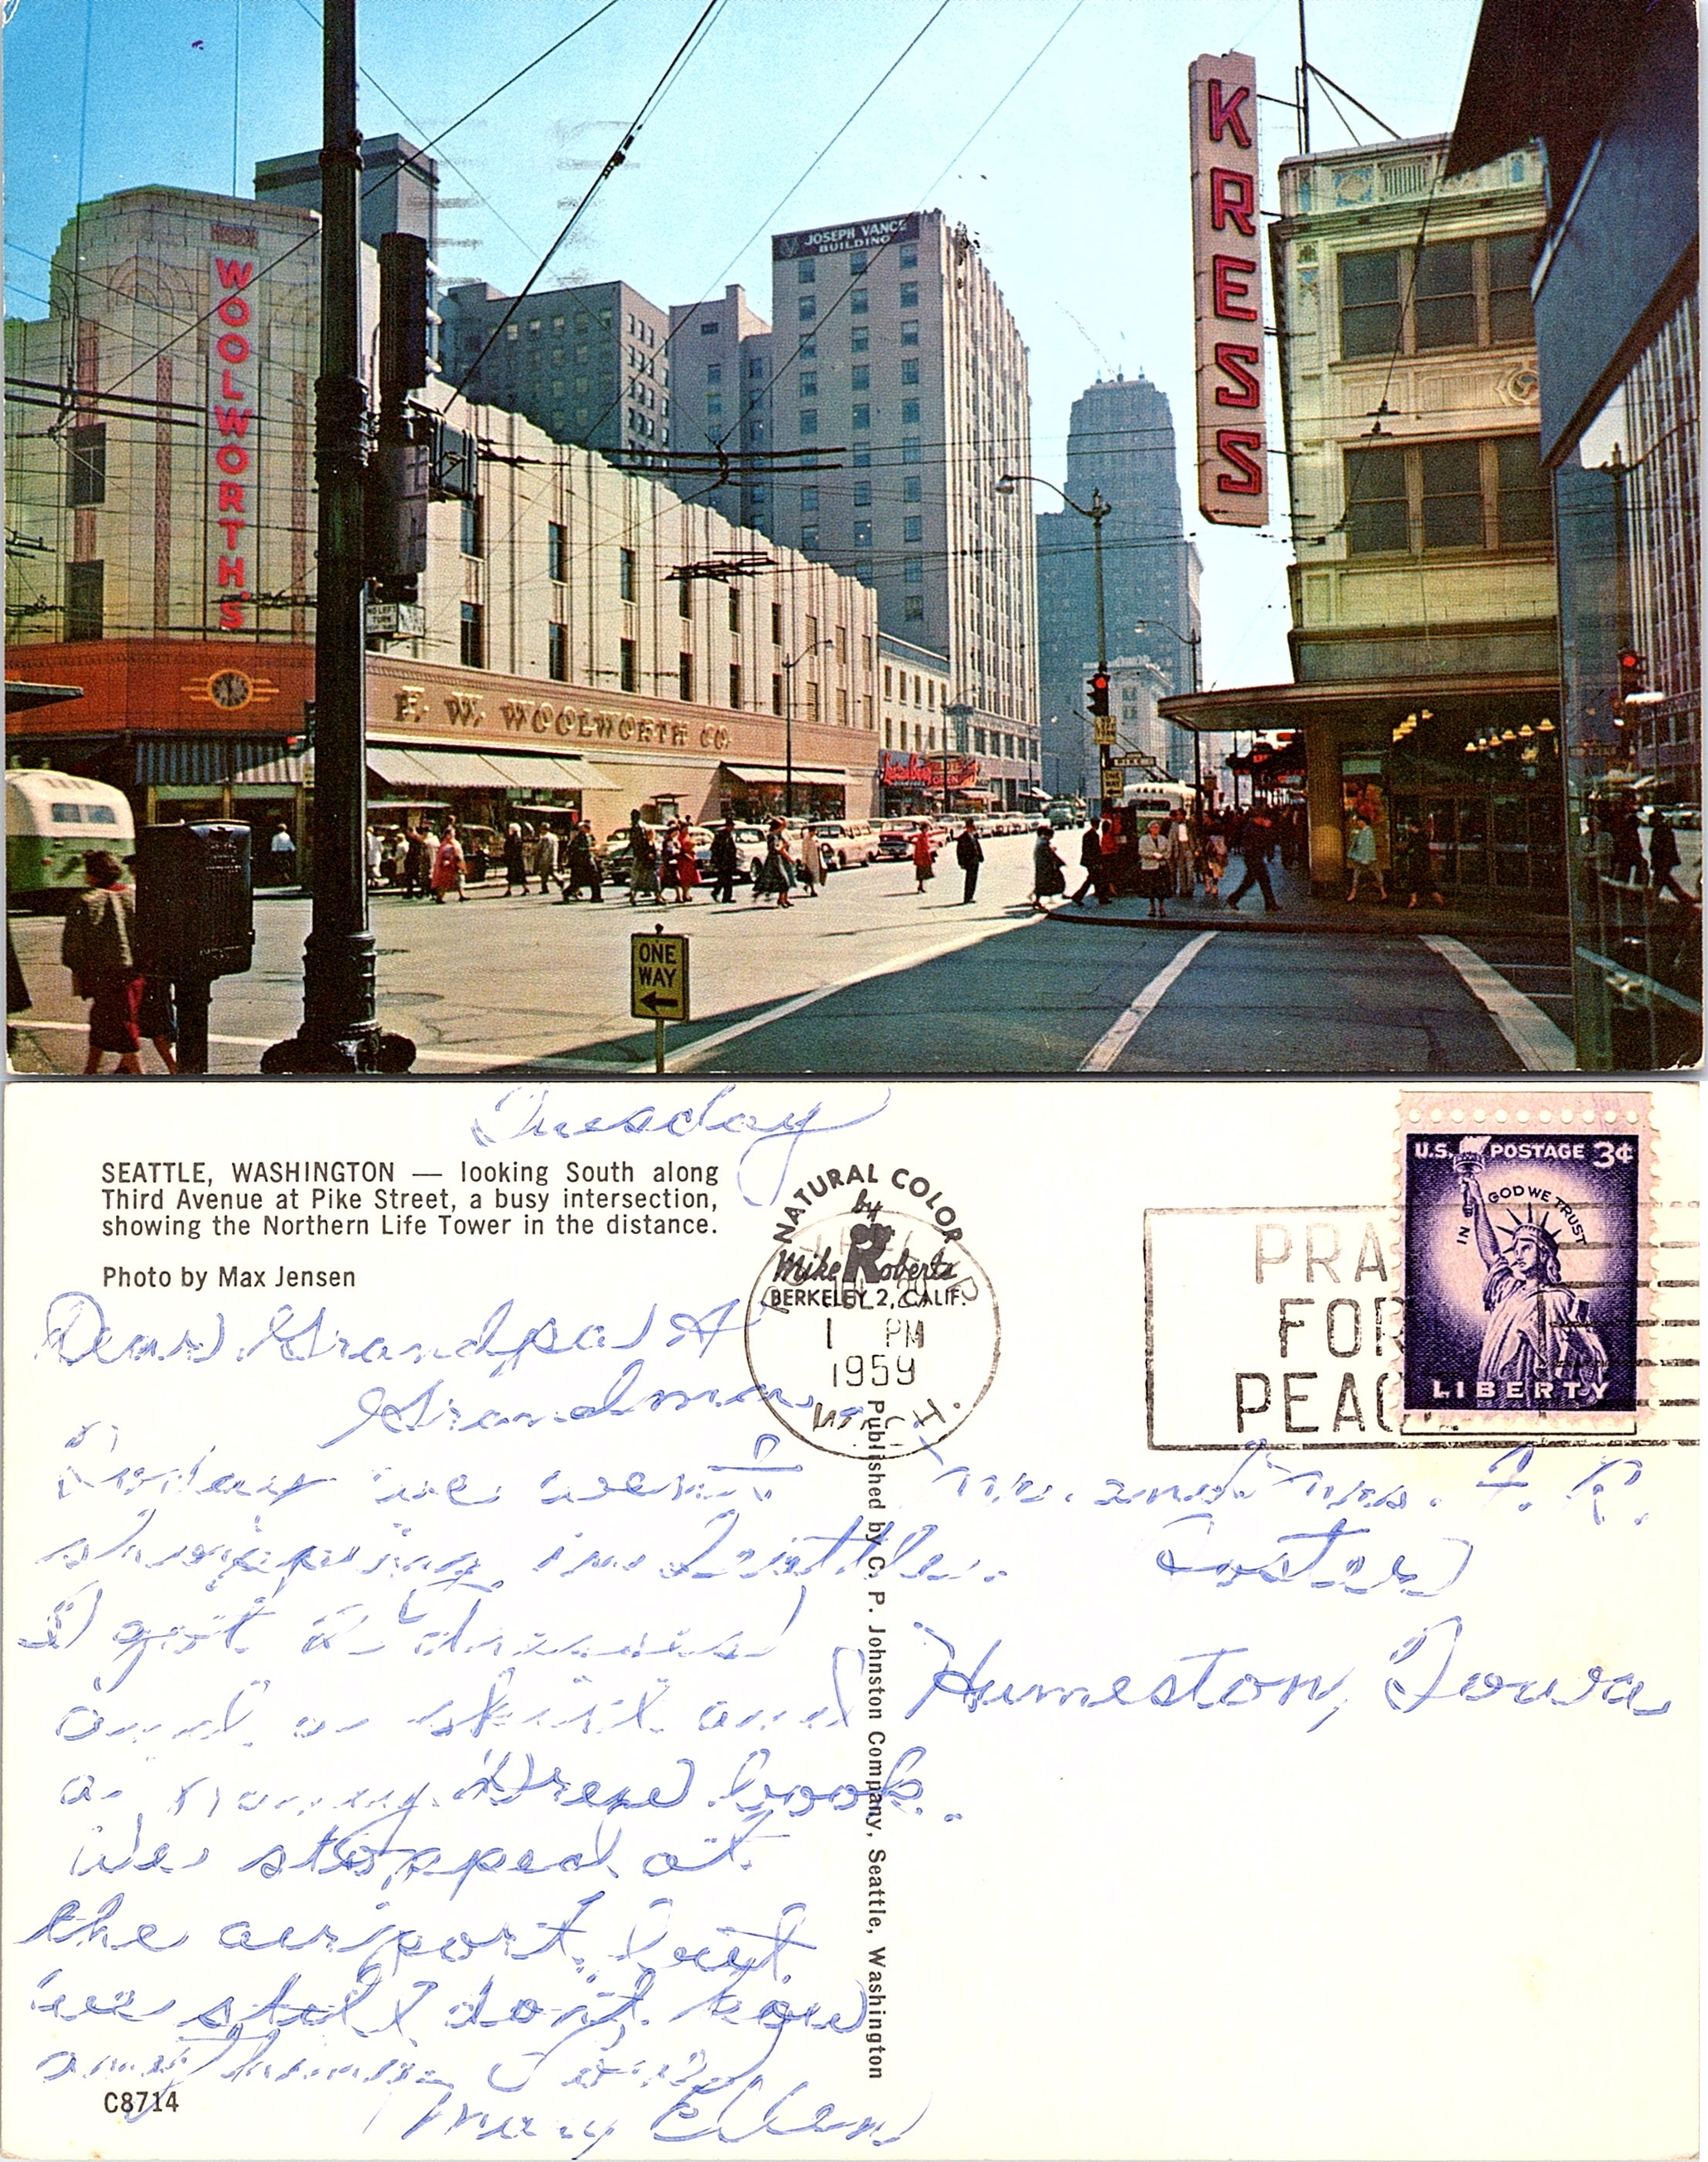 WOOLWORTH'S
JOSEPH VANCE
BUILDING
KRESS
NO LEFT
TURN
F. W. WOOLWORTH CO
PIKE
ONE
WAY
Tuesday
SEATTLE, WASHINGTON — looking South along
Third Avenue at Pike Street, a busy intersection,
showing the Northern Life Tower in the distance.
Photo by Max Jensen
NATURAL COLOR
by
Mike Roberts
BERKELEY 2, CALIF.
1 PM
1959
WASH.
PRA
FOR
PEAC
U.S. POSTAGE 3¢
IN GOD WE TRUST
LIBERTY
Dear Grandpa &
Grandma,
Today we went
shopping in Seattle.
I got a
and a skirt and
a Nancy Drew book.
We stopped at
the airport but
we still don't know
anything
Mary Ellen
C8714
Published by C. P. Johnston Company, Seattle, Washington
Mr. and Mrs. F. R.
Foster
Humeston, Iowa